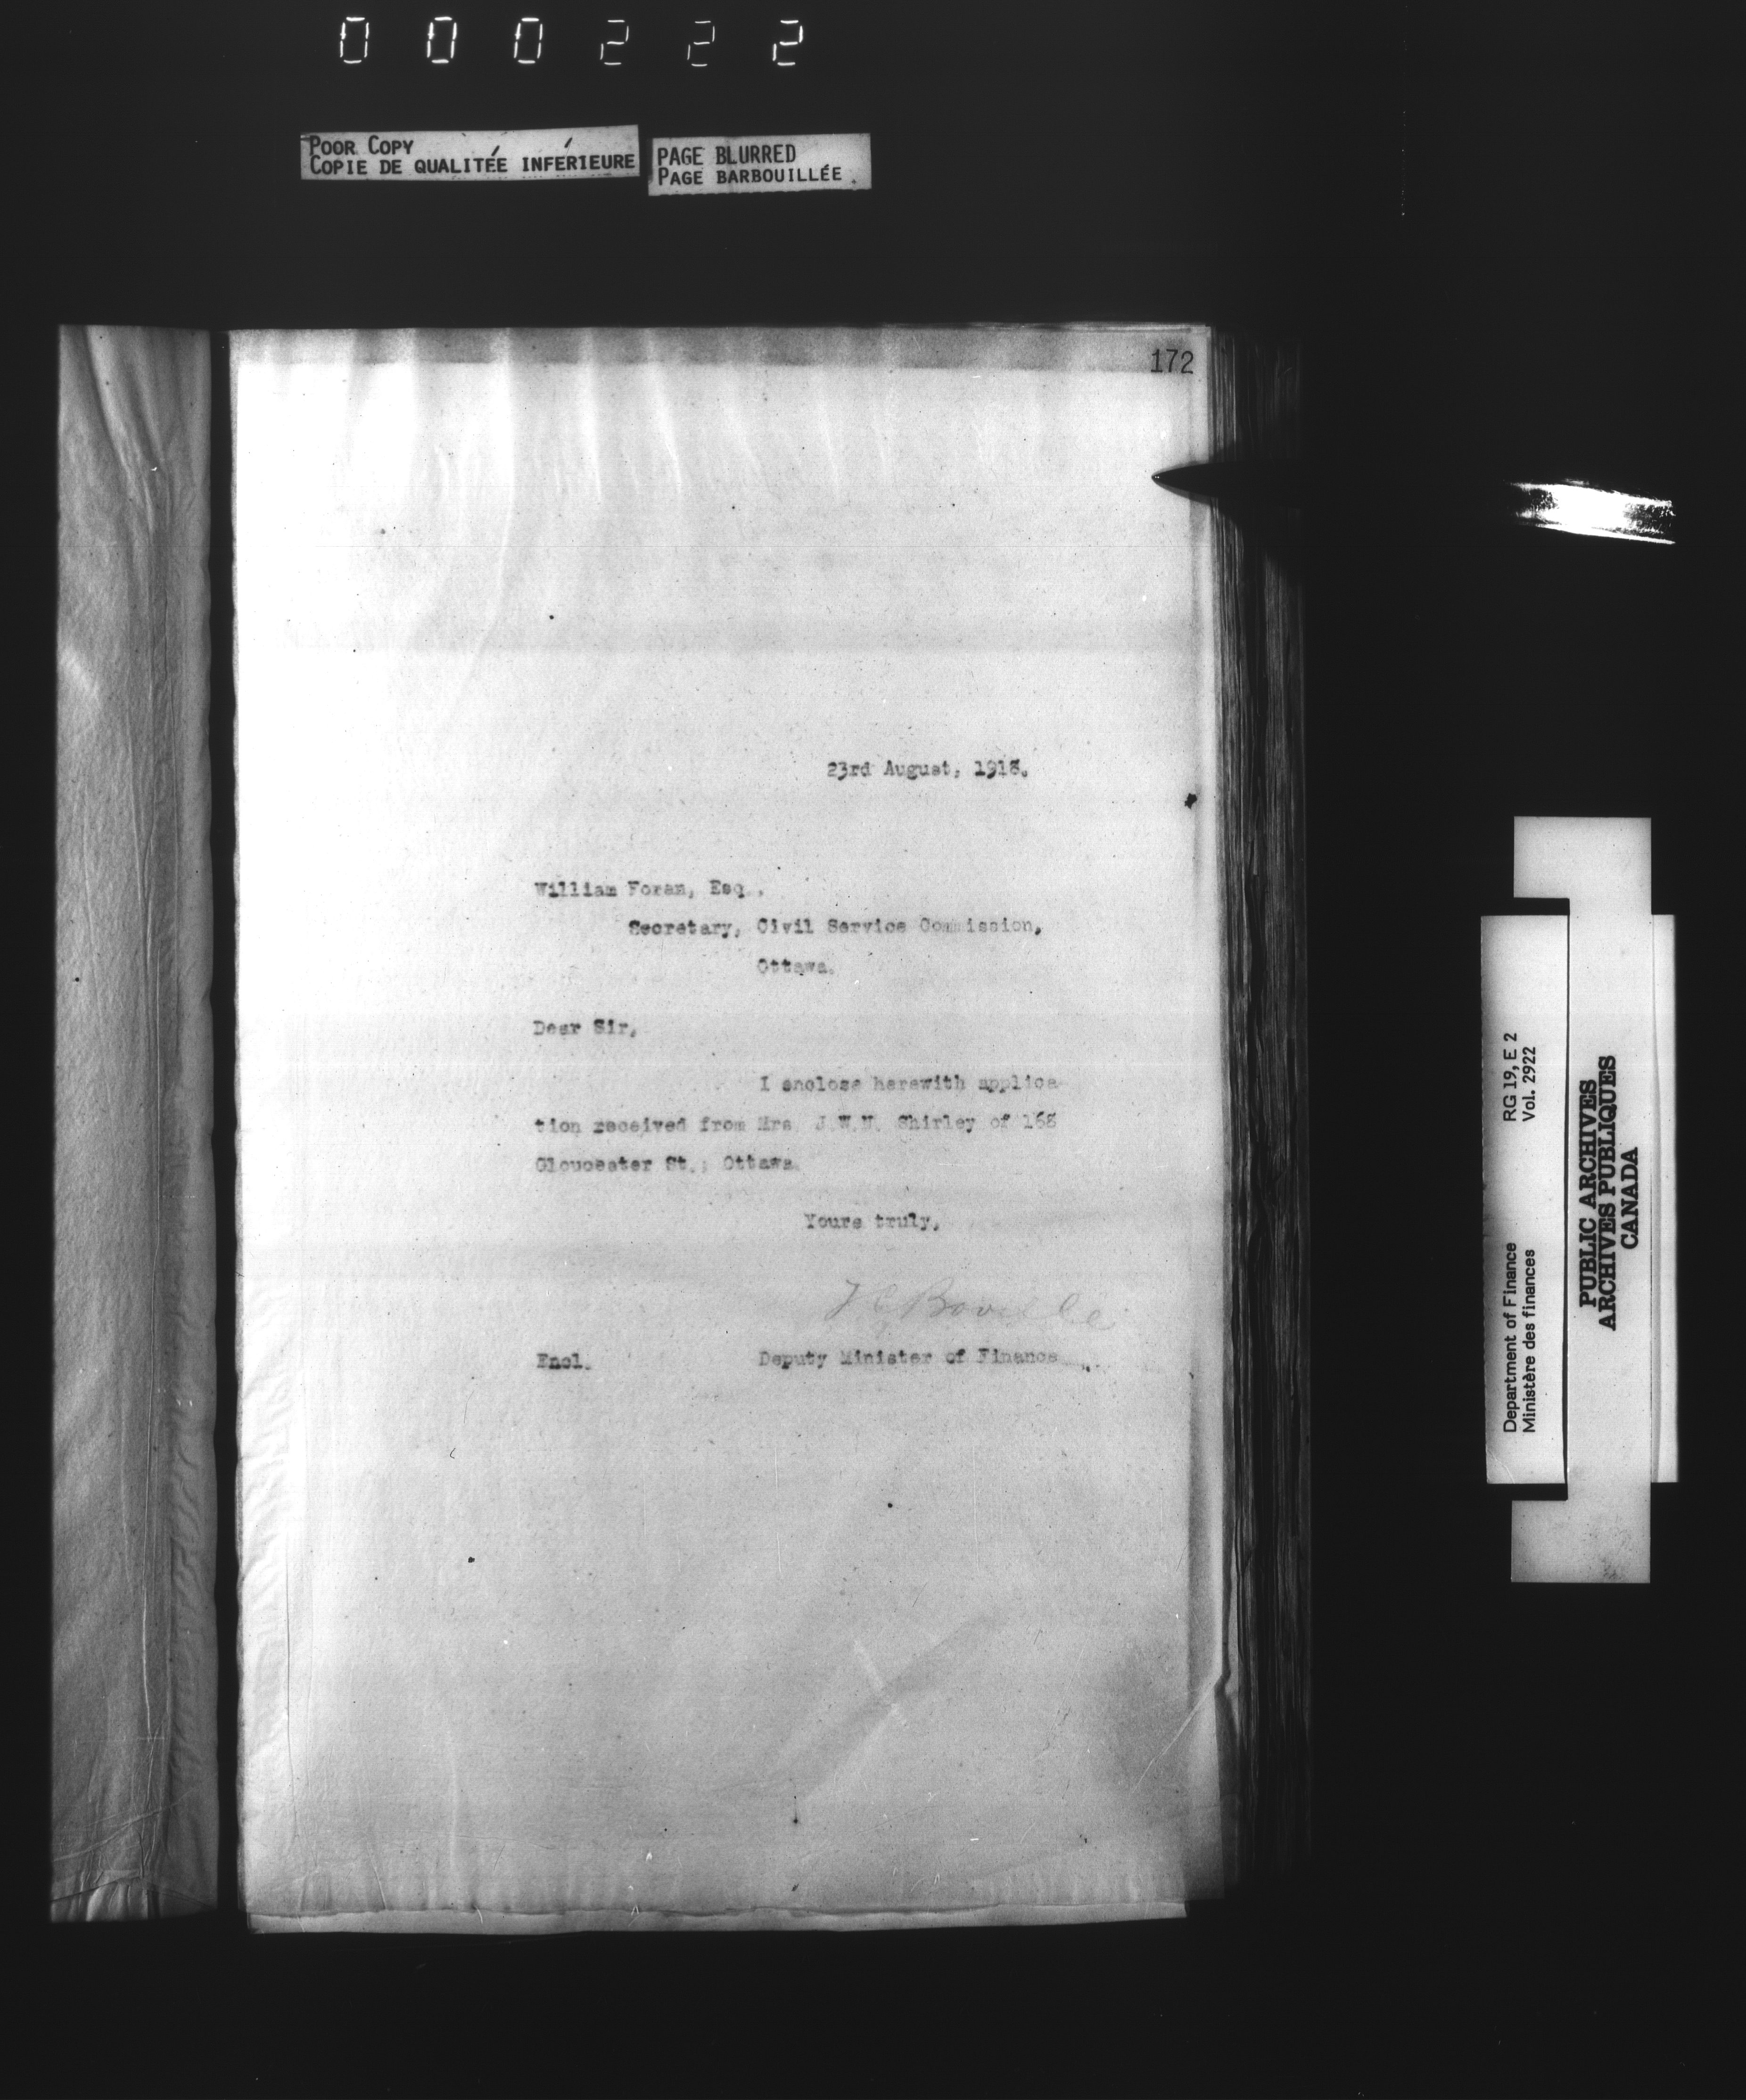 000222
POOR COPY
COPIE DE QUALITÉE INFÉRIEURE
PAGE BLURRED
PAGE BARBOUILLÉE
172
23rd August, 1918.
William Foran, Esq.,
Secretary, Civil Service Commission,
Ottawa.
Dear Sir,
I enclose herewith applica-
tion received from Mrs. J.W.N. Shirley of 168
Gloucester St., Ottawa.
Yours truly,
T C Boville
Encl. Deputy Minister of Finance.
Department of Finance RG 19, E 2
Ministère des finances Vol. 2922
PUBLIC ARCHIVES
ARCHIVES PUBLIQUES
CANADA